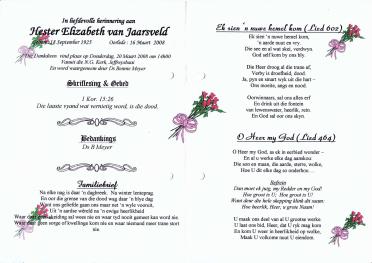 In liefdevolle herinnering aan
Hester Elizabeth van Jaarsveld
18 September 1925 Oorlede : 16 Maart 2008
Die Dankdiens vind plaas op Donderdag, 20 Maart 2008 om 14h00
Vanuit die N.G. Kerk, Jeffreysbaai
En word waargeneem deur Ds Bennie Meyer
Skriflesing & Gebed
1 Kor. 15:26
Die laaste vyand wat vernietig word, is die dood.
Bedankings
Ds B Meyer
Familiebrief
Na elke nag is daar 'n dagbreek. Na winter lenteprag.
En oor die grense van die dood waar daar 'n blye dag
ons geliefde gaan ons maar net 'n wyle vooruit,
Uit 'n aardse wêreld na 'n ewige heerlikheid
Waar geen skeiding sal wees nie en waar tyd nooit gemeet kan word nie.
Waar geen sorge of kwellings kom nie en waar niemand meer trane stort
nie
Ek sien 'n nuwe hemel kom ( Lied 602)
Ek sien 'n nuwe hemel kom,
'n aarde nuut en vry.
Die see en al wat skei, verdwyn.
God sal self by ons bly.
Die Heer droog al die trane af,
Verby is droefheid, dood.
Ja, pyn en smart wyk uit die hart –
Ons moeite, angs en nood.
Oorwinnaars, sal ons alles erf
En drink uit die fontein
van lewenswater, heerlik, rein.
En God sal oor ons skyn.
O Heer my God ( Lied 464)
O Heer my God, as ek in eerbied wonder –
En al u werke elke dag aanskou:
Die son en maan, die aarde, sterre, wolke,
Hoe U dit elke dag so onderhou...
Refrein
Dan moet ek juig, my Redder en my God!
Hoe groot is U; Hoe groot is U!
Want deur die hele skepping klink dit saam:
Hoe heerlik, Heer, u grote Naam!
U maak ons deel van al U grootse werke
U laat ons bid, Heer, dat U ryk mag kom
En kom U weer in heerlikheid op wolke,
Maak U volkome nuut U eiendom.